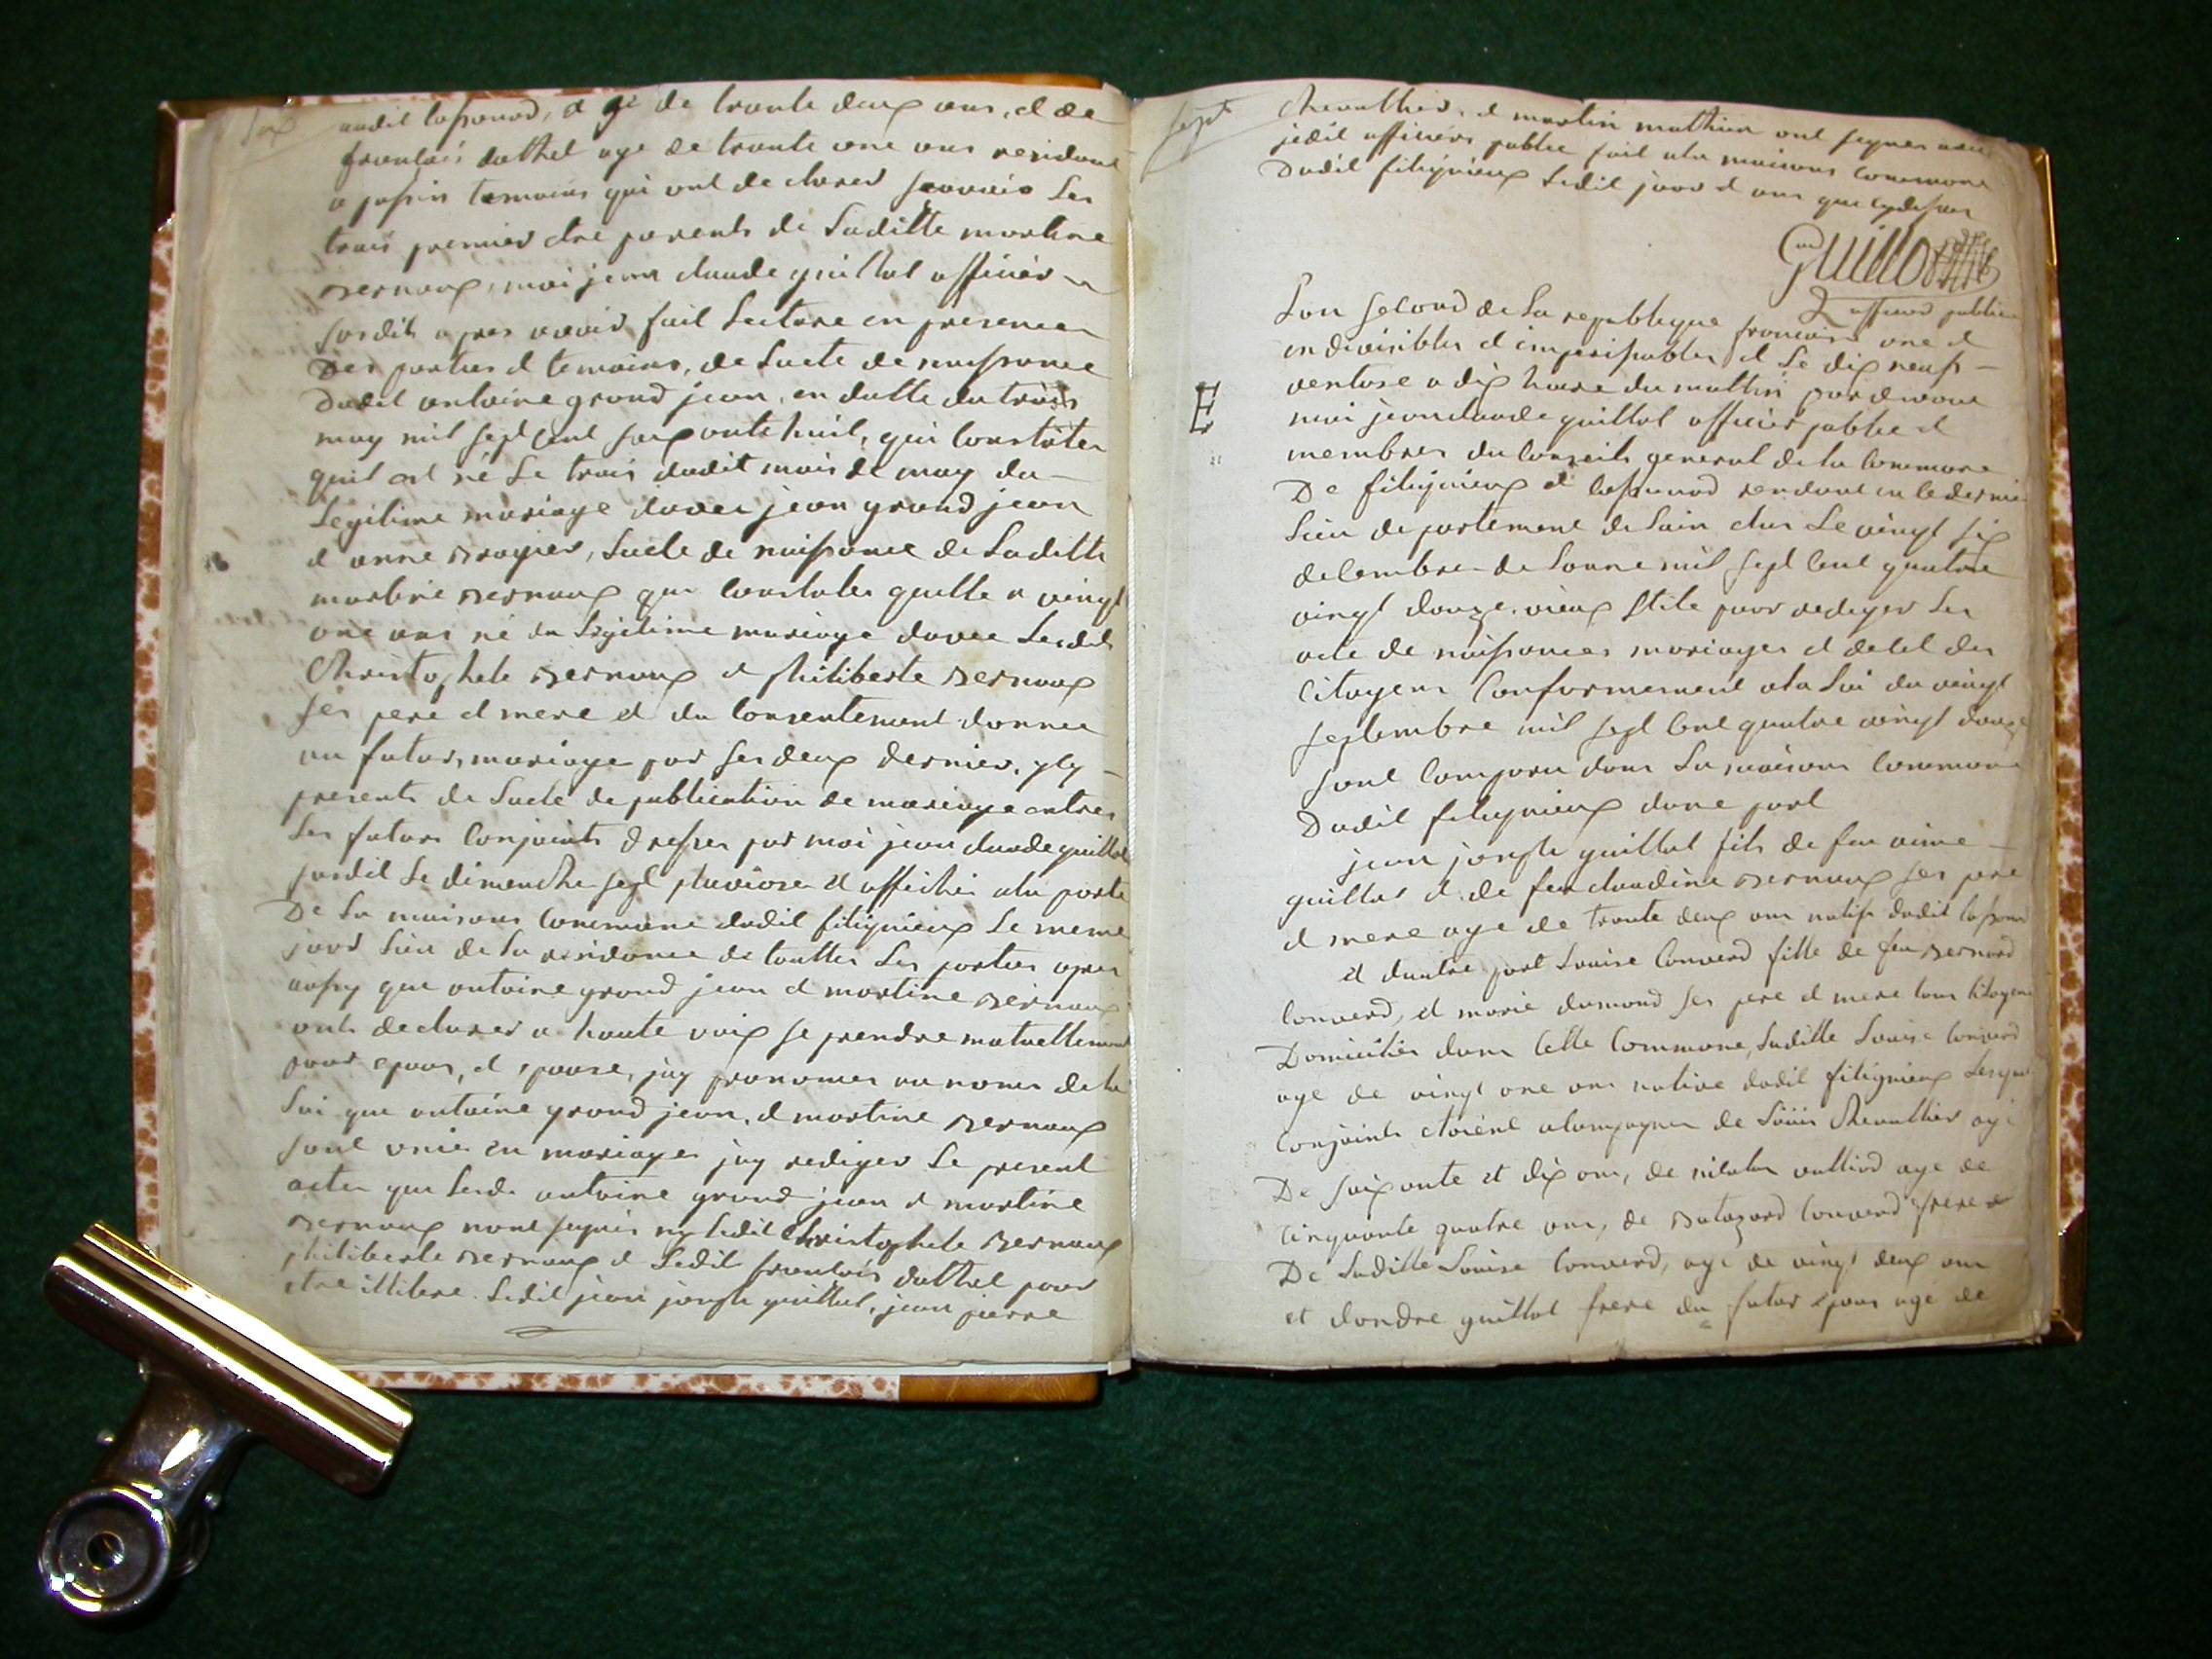 six
audit lassonod, a gé de trante deux ans, et de
francois duthel age de trante one ans residant
a jussin temoins qui ont de clarer scavoir Les
trois premier etre parents de Laditte martine
Bernaux, moi jean claude guillot officier
susdit apres avoir fait Lecture en presence
Des parties et temoins, de Lacte de naissance
Dudit antoine grand jean, en datte du trois
may mil sept cent soixante huit, qui constater
quil est né Le trois dudit mois de may du
Legitime mariage davec jean grand jean
et anne Brogier, Lacte de naissance de Laditte
martine Bernaux que constater quelle a vingt
one ans né du Legitime mariage davec Lesdit
Christophele Bernaux et philiberte Bernaux
ses pere et mere et du consentement donner
au futur mariage par ses deux dernier, yly
presents de Lacte de publication de mariage entres
Les futurs conjoints dresser par moi jean claude guillot
susdit Le dimenche sept pluviose et afficher ala porte
De La maisons commune dudit fitignieux Le meme
jour Lieu de La residance de touttes Les parties apres
aussy que antoine grand jean et martine Bernaux
ont declarer a haute voix se prendre mutuellement
pour epoux, et epouse, jay prononcer au noms de la
Loi que antoine grand jean, et martine Bernaux
sont unis en mariages jay rediger Le present
actes que Lesd. antoine grand jean et martine
Bernaux nont signés ny Ledit Christophele Bernaux
philiberte Bernaux et Ledit francois duthel pour
etre illitere. Ledit jean joseph guillot, jean pierre
sept
Chevallier, et martin mathieu ont signer avec
jedit officiers public fait ala maisons commune
Dudit fitignieux Ledit jour et ans que cydessus
Guillot
officier public
Lan second de La republique francoise one et
indivisibles et imperissables et Le dix neufs
E
ventose a dix heure du mattin par devant
moi jean claude guillot officier public et
membres du conseils general de la commune
De fitignieux et lassonod rendant en ledernier
Lieu departement de Lain elus Le vingt six
decembre de Lanne mil sept cent quatre
vingt douze. vieux stile pour rediger Les
acte de naissances mariages et decet des
Citoyens Conformement ala Loi du vingt
septembre mil sept cent quatre vingt douze
sont comparu dans La maisons commune
Dudit fitignieux dune part
jean joseph guillot fils de feu aime
guillot et de feu claudine Bernaux ses pere
et mere age de trante deux ans natifs dudit lassonod
et dautre part Louise Converd fille de feu Bernard
Converd, et marie dumond ses pere et mere tous Citoyens
Domicilier dans Cette Commune, Laditte Louise Converd
age de vingt one ans native dudit fitignieux Lesquel
Conjoints etoient alompagner de Louis Chevallier agé
De soixante et dix ans, de nicolas valliod age de
Cinquante quatre ans, de Batazard Converd frere
De Laditte Louise Converd, agé de vingt deux ans
et dandre guillot frere du futur epoux age de